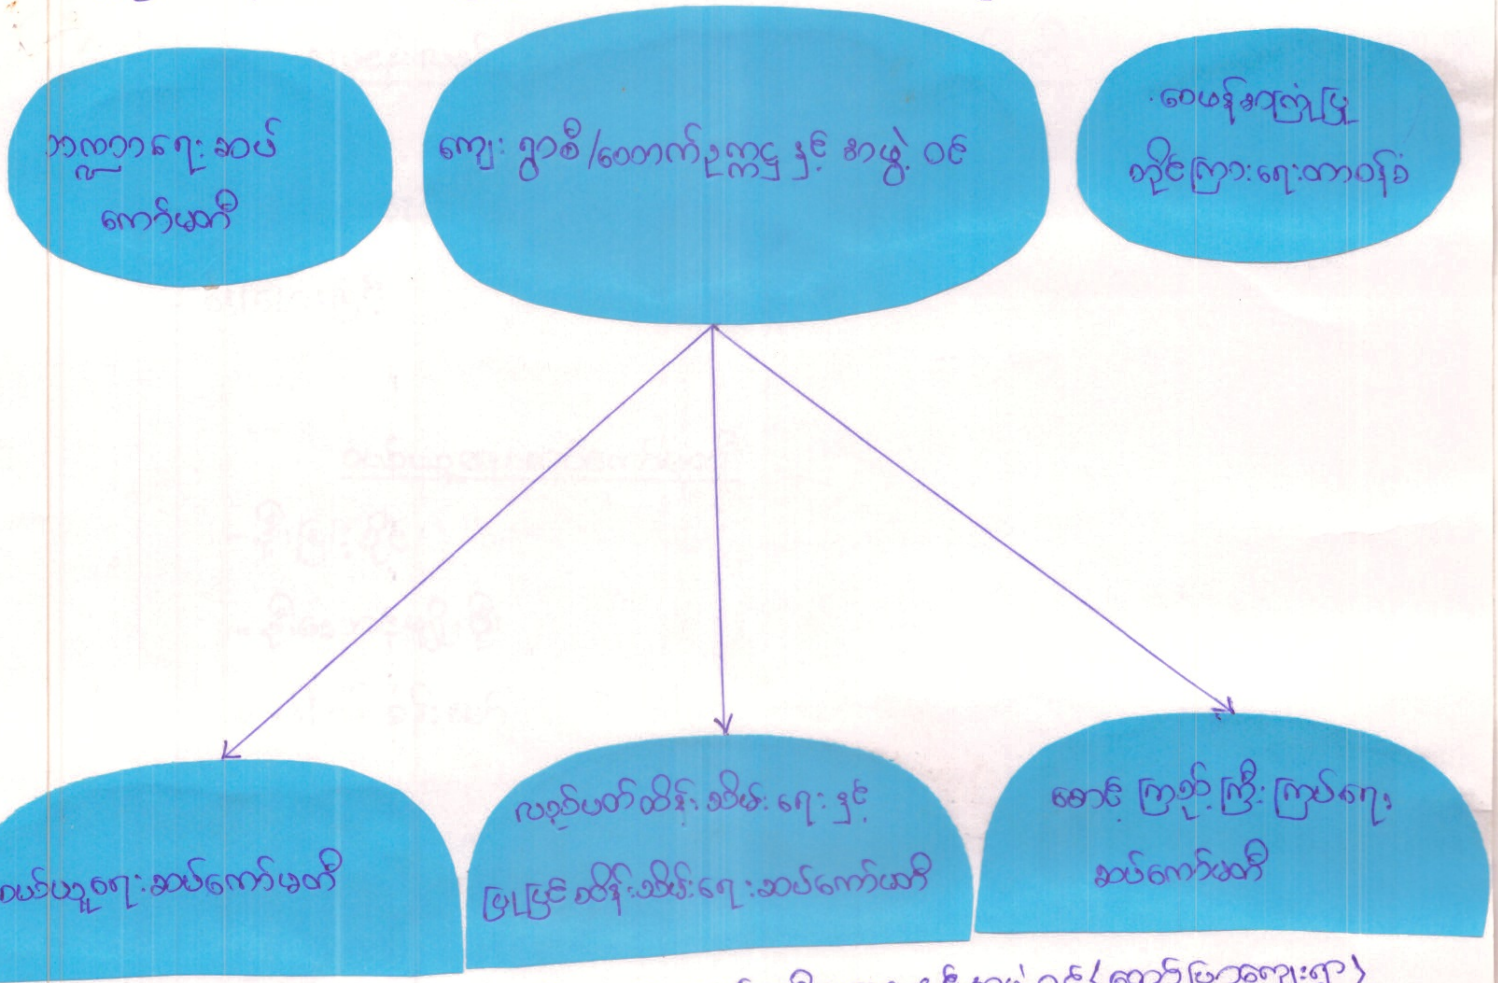 ဘဏ္ဍာရေးဆပ်
ကော်မတီ
ကျေးရွာစီ/ထောက်ဥက္ကဋ္ဌနှင့် အဖွဲ့ဝင်
ဝေဖန်အကြံပြု
တိုင်ကြားရေးတာဝန်ခံ
ဝယ်ယူရေးဆပ်ကော်မတီ
လည်ပတ်ထိန်းသိမ်းရေးနှင့်
ပြုပြင်ထိန်းသိမ်းရေးဆပ်ကော်မတီ
စောင့်ကြည့်ကြီးကြပ်ရေး
ဆပ်ကော်မတီ